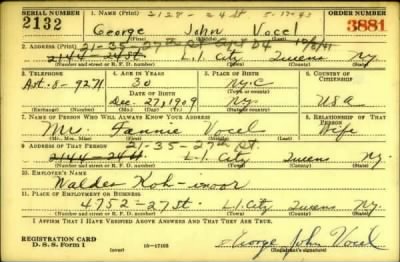 SERIAL NUMBER 1. NAME (Print) 2128 - 24 St 5-17-43 ORDER NUMBER
2132 George John Vocel 3881
(First) (Middle) (Last)
2. ADDRESS (Print) 21-35-27th St 10/6/41
2144-24 St. L.I. City Queens N.Y.
(Number and street or R. F. D. number) (Town) (County) (State)
3. TELEPHONE 4. AGE IN YEARS 5. PLACE OF BIRTH 6. COUNTRY OF CITIZENSHIP
Ast. 8-9271 30 N.Y.C
DATE OF BIRTH (Town or county)
Dec. 27, 1909 N.Y. USA
(Exchange) (Number) (Mo.) (Day) (Yr.) (State or country)
7. NAME OF PERSON WHO WILL ALWAYS KNOW YOUR ADDRESS 8. RELATIONSHIP OF THAT PERSON
Fannie Vocel Wife
(Mr., Mrs., Miss) (First) (Middle) (Last)
9. ADDRESS OF THAT PERSON 21-35-27th St.
2144-24 St L.I. City Queens N.Y.
(Number and street or R. F. D. number) (Town) (County) (State)
10. EMPLOYER'S NAME
Waldes Koh-inoor
11. PLACE OF EMPLOYMENT OR BUSINESS
4752-27 St. L.I. City Queens N.Y.
(Number and street or R. F. D. number) (Town) (County) (State)
I AFFIRM THAT I HAVE VERIFIED ABOVE ANSWERS AND THAT THEY ARE TRUE.
REGISTRATION CARD
D. S. S. Form 1 (over) 16-17105 George John Vocel
(Registrant's signature)